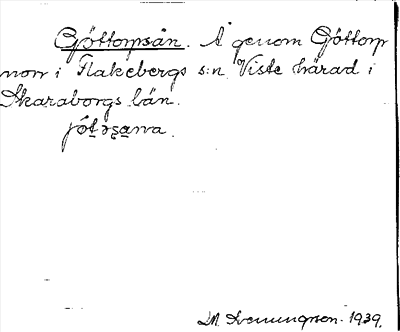 Göttorpsån. Å genom Göttorp
norr i Flakebergs s:n Viste härad i
Skaraborgs län.
1939.